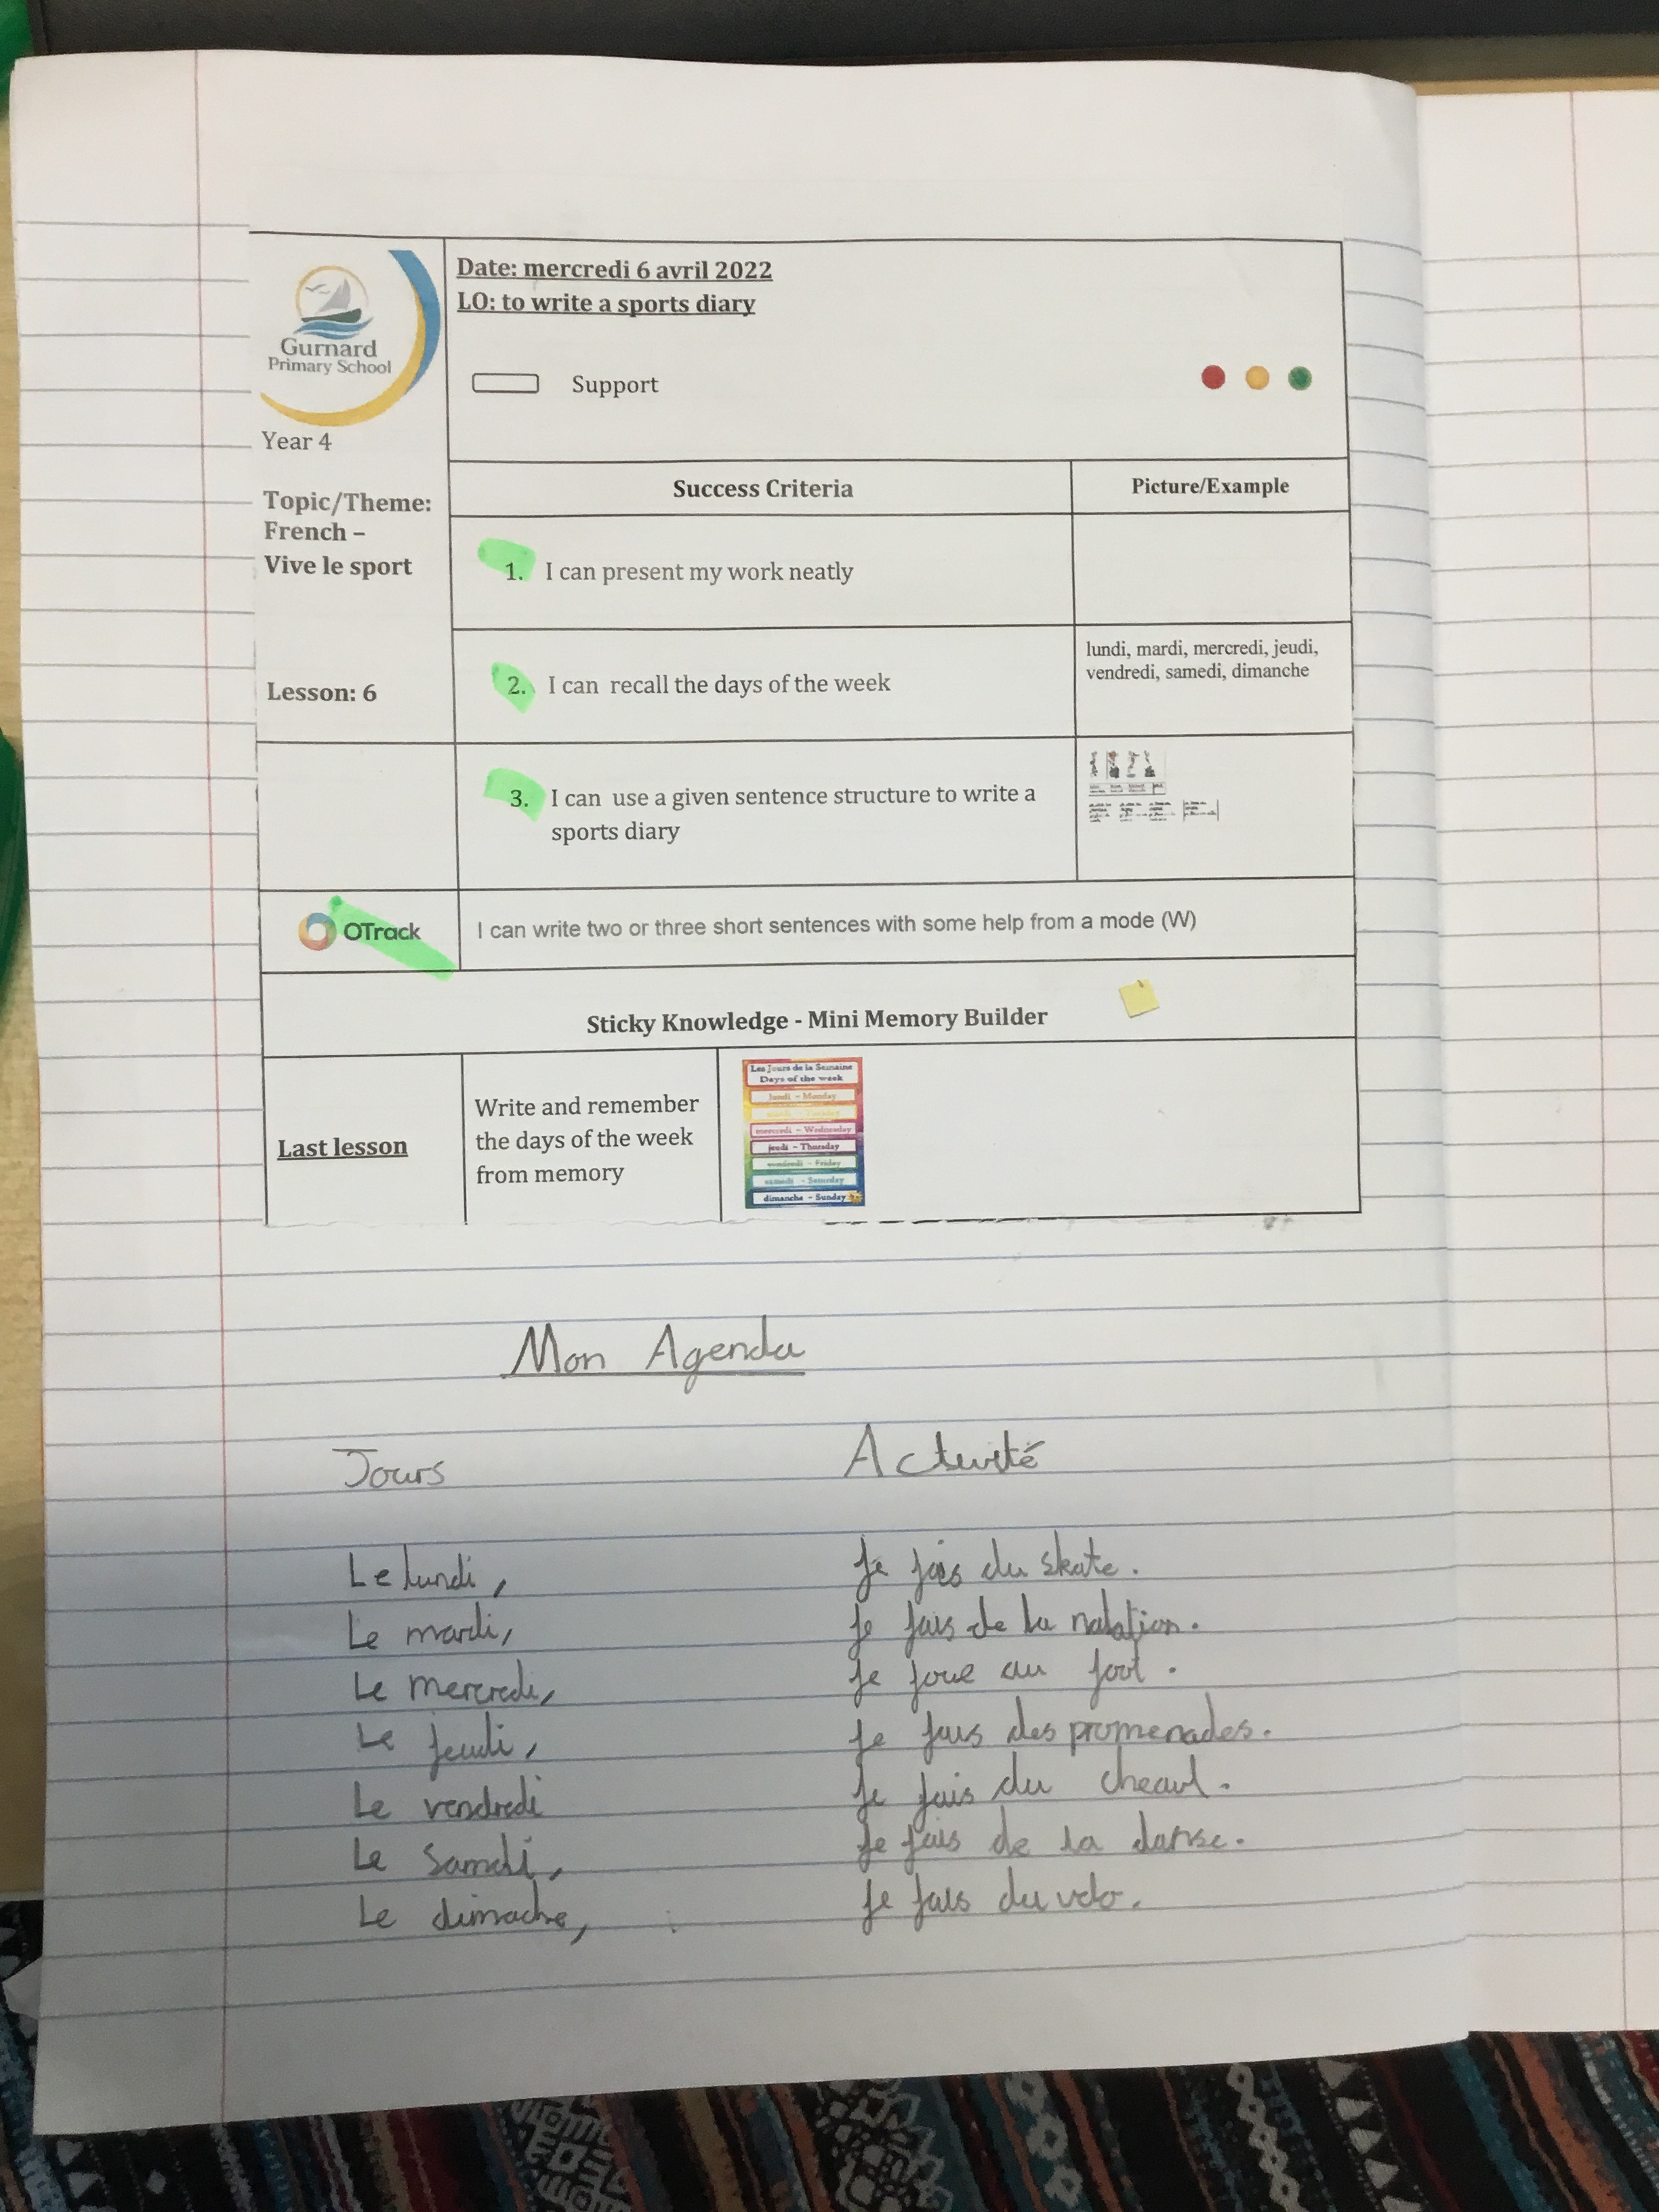 Gurnard
Primary School
Year 4
Topic/Theme:
French –
Vive le sport
Lesson: 6
Date: mercredi 6 avril 2022
LO: to write a sports diary
Support
Success Criteria
Picture/Example
1. I can present my work neatly
2. I can recall the days of the week
lundi, mardi, mercredi, jeudi,
vendredi, samedi, dimanche
3. I can use a given sentence structure to write a
sports diary
OTrack
I can write two or three short sentences with some help from a mode (W)
Sticky Knowledge - Mini Memory Builder
Last lesson
Write and remember
the days of the week
from memory
Les Jours de la Semaine
Days of the week
lundi - Monday
mercredi - Wednesday
jeudi - Thursday
vendredi - Friday
samedi - Saturday
dimanche - Sunday
Mon Agenda
Jours Activité
Le lundi, Je fais du skate.
Le mardi, Je fais de la natation.
Le mercredi, Je joue au foot.
Le jeudi, Je fais des promenades.
Le vendredi Je fais du cheaul.
Le Samdi, Je fais de la danse.
Le dimache, Je fais du vdo.